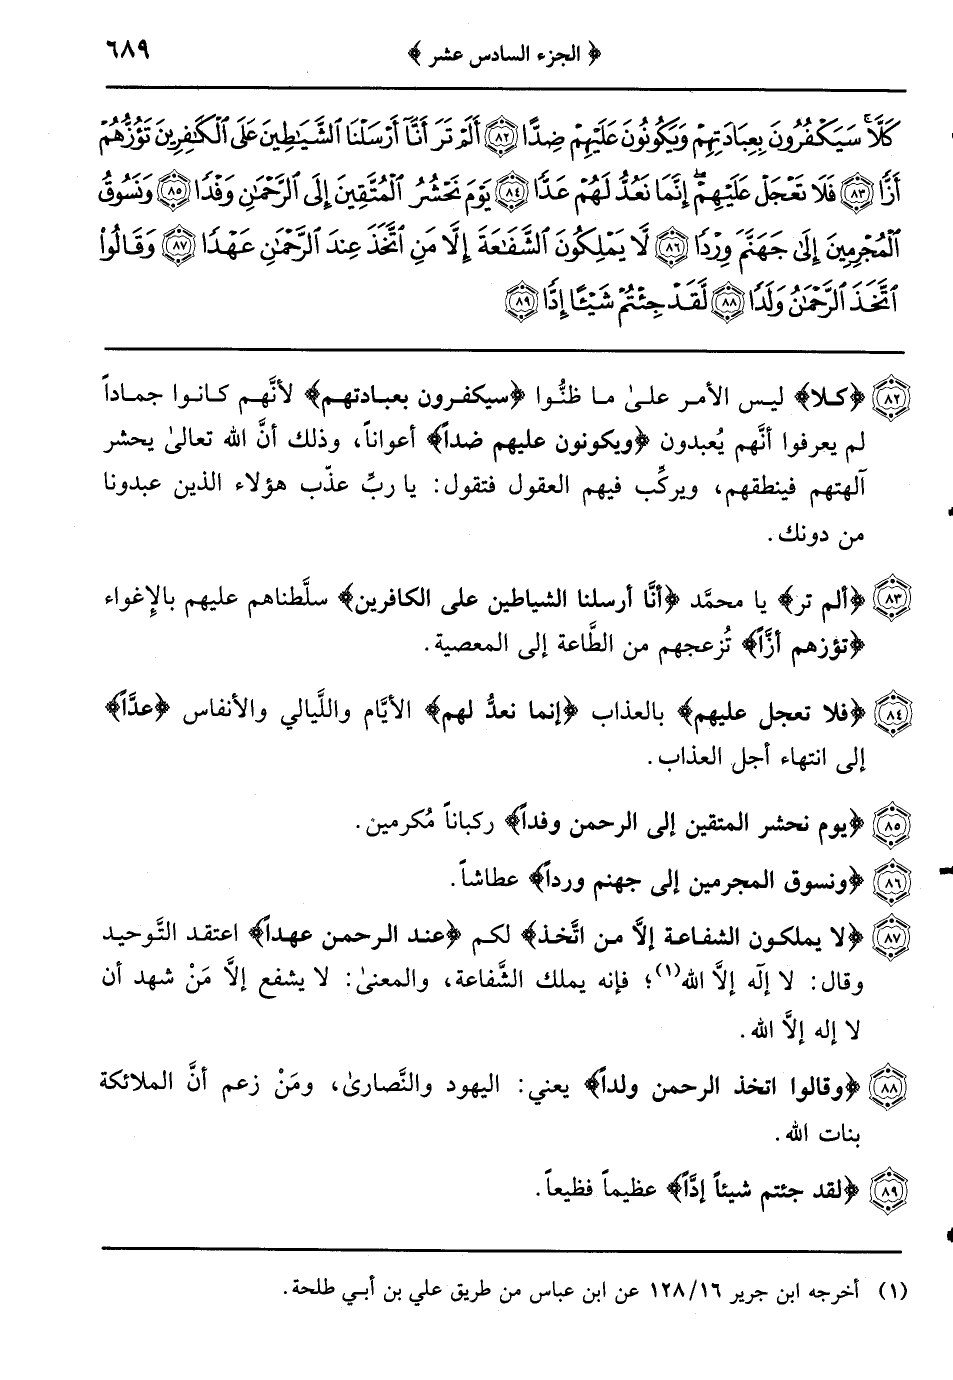 ﴿ الجزء السادس عشر ﴾ ٦٨٩
كَلَّا ۚ سَيَكْفُرُونَ بِعِبَادَتِهِمْ وَيَكُونُونَ عَلَيْهِمْ ضِدًّا ٨٢ أَلَمْ تَرَ أَنَّآ أَرْسَلْنَا الشَّيَٰطِينَ عَلَى الْكَٰفِرِينَ تَؤُزُّهُمْ
أَزًّا ٨٣ فَلَا تَعْجَلْ عَلَيْهِمْ ۖ إِنَّمَا نَعُدُّ لَهُمْ عَدًّا ٨٤ يَوْمَ نَحْشُرُ الْمُتَّقِينَ إِلَى الرَّحْمَٰنِ وَفْدًا ٨٥ وَنَسُوقُ
الْمُجْرِمِينَ إِلَىٰ جَهَنَّمَ وِرْدًا ٨٦ لَّا يَمْلِكُونَ الشَّفَٰعَةَ إِلَّا مَنِ اتَّخَذَ عِندَ الرَّحْمَٰنِ عَهْدًا ٨٧ وَقَالُوا
اتَّخَذَ الرَّحْمَٰنُ وَلَدًا ٨٨ لَّقَدْ جِئْتُمْ شَيْـًٔا إِدًّا ٨٩
٨٢ ﴿كلا﴾ ليس الأمر علىٰ ما ظنُّوا ﴿سيكفرون بعبادتهم﴾ لأنَّهم كانوا جماداً
لم يعرفوا أنَّهم يُعبدون ﴿ويكونون عليهم ضداً﴾ أعواناً، وذلك أنَّ الله تعالىٰ يحشر
آلهتهم فينطقهم، ويركِّب فيهم العقول فتقول: يا ربِّ عذّب هؤلاء الذين عبدونا
من دونك.
٨٣ ﴿ألم تر﴾ يا محمَّد ﴿أنَّا أرسلنا الشياطين على الكافرين﴾ سلَّطناهم عليهم بالإِغواء
﴿تؤزهم أزَّاً﴾ تُزعجهم من الطَّاعة إلى المعصية.
٨٤ ﴿فلا تعجل عليهم﴾ بالعذاب ﴿إنما نعدُّ لهم﴾ الأيَّام واللَّيالي والأنفاس ﴿عدَّاً﴾
إلى انتهاء أجل العذاب.
٨٥ ﴿يوم نحشر المتقين إلى الرحمن وفداً﴾ ركباناً مُكرمين.
٨٦ ﴿ونسوق المجرمين إلى جهنم ورداً﴾ عطاشاً.
٨٧ ﴿لا يملكون الشفاعة إلاَّ من اتَّخذ﴾ لكم ﴿عند الرحمن عهداً﴾ اعتقد التَّوحيد
وقال: لا إلٰه إلاَّ الله(١)؛ فإنه يملك الشَّفاعة، والمعنىٰ: لا يشفع إلاَّ مَنْ شهد أن
لا إله إلاَّ الله.
٨٨ ﴿وقالوا اتخذ الرحمن ولداً﴾ يعني: اليهود والنَّصارىٰ، ومَنْ زعم أنَّ الملائكة
بنات الله.
٨٩ ﴿لقد جئتم شيئاً إدَّاً﴾ عظيماً فظيعاً.
(١) أخرجه ابن جرير ١٢٨/١٦ عن ابن عباس من طريق علي بن أبي طلحة.